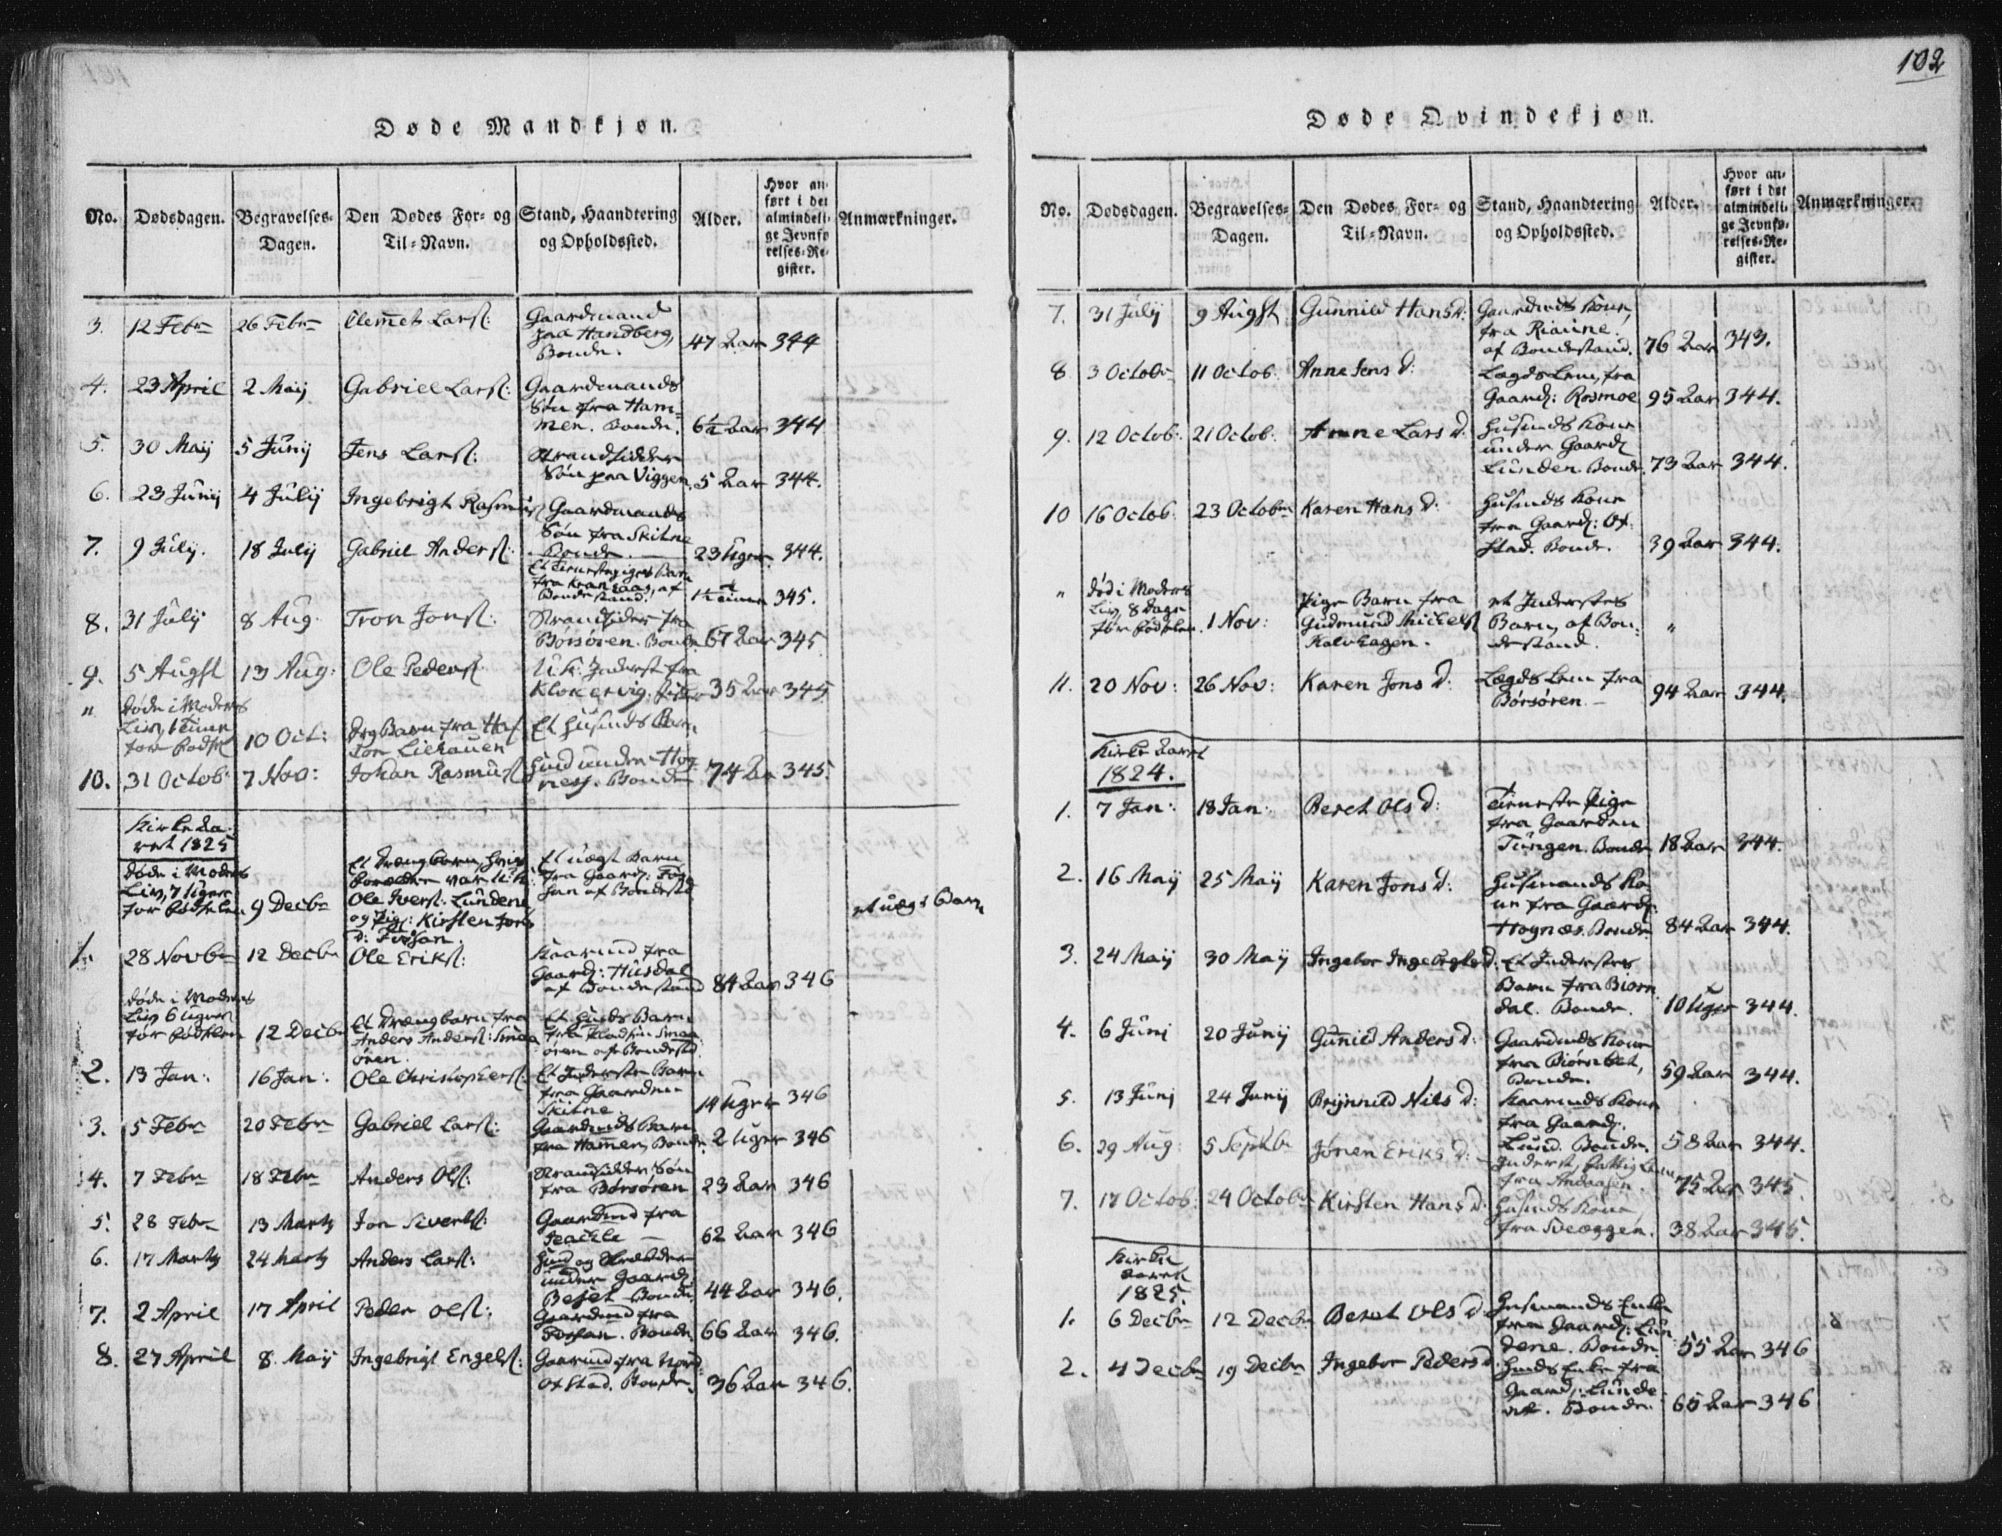 102
Døde Mandkjøn.
No. Dødsdagen. Begravelses-Dagen. Den Dødes For- og Til-Navn. Stand, Haandtering og Opholdssted. Alder. Hvor anført i det almindelige Jevnførelses-Register. Anmærkninger.
3. 12 Febr 26 Febr Clemet Larss: Gaardmand paa Handberg, Bonde. 47 Aar 344
4. 23 April 2 Maij Gabriel Larss: Gaardmands Søn fra Hammen. Bonde. 6½ Aar 344
5. 30 Maij 5 Junij Jens Larss: Strandsidder Søn paa Viggen. 5 Aar 344.
6. 23 Junij 4 Julij Ingebrigt Rasmuss: Gaardmands Søn fra Skitne Bonde. 23 Uger. 344.
7. 9 Julij. 18 Julij Gabriel Anderss: Et Tienestepiges Barn fra Kransaas, af Bondestand. 345.
8. 31 Julij 8 Aug. Tron Jonss: Strandsider fra Børsøren. Bonde 67 Aar 345
9. 5 Augst 13 Aug: Ole Pederss: U.K. Inderst fra 35 Aar 345
" Døde i Moders Liv, 1 Time før Fødsel 10 Oct: Drg Barn fra Et Husmds Barn
10. 31 Octob: 7 Nov: Johan Rasmuss: Husmd under Hogness. Bonde 74 Aar 345.
Kirke Aaret 1825
Døde i Moders Liv, 7 Uger før Fødselen 9 Decbr Et Drængbarn, hvis Forældre var U:K: Ole Sivers: Lundene og Pige: Kirsten Jons D: Fossan. Et uægt Barn fra Gaard: Fossan af Bondestd Et uægt Barn
1. 28 Novbr 12 Decbr Ole Erikss: Kaarmd fra Gaard: Husdal af Bondestand 84 Aar 346
Døde i Moders Liv 6 Uger før Fødselen 12 Decbr Et Drængbarn fra Anders Anderss: Smaaøren. Et Husmds Barn fra Pladsen Smaaøren af Bondestd
2. 13 Jan: 16 Jan: Ole Christophers: Et Inderste Barn fra Gaarden Skitne 14 Uger 346
3. 5 Febr 20 Febr Gabriel Larss: Gaardmds Barn fra Hammen, Bonde. 2 Uger 346
4. 7 Febr 18 Febr Anders Olss: Strandsidder Søn fra Børsøren 23 Aar 346
5. 28 Febr 13 Marts Jon Siverts: Gaardmd fra 62 Aar 346
6. 17 Marts 24 Marts Anders Larss: Husmd og under Gaard: Beset Bonde. 44 Aar 346.
7. 2 April 17 April Peder Olss: Gaardmd fra Fossan. Bonde 66 Aar 346.
8. 27 April 8. Maij Ingebrigt Engelss: Gaarmd fra Nordofstad. Bonde. 36 Aar 346.
Døde Qvindekjøn.
No. Dødsdagen. Begravelses-Dagen. Den Dødes For- og Til-Navn. Stand, Haandtering og Opholdssted. Alder. Hvor anført i det almindelige Jevnførelses-Register. Anmærkninger.
7. 31 Julij 9 Augst Gunnild Hans D: Gaardmds Kone, fra Riaune. af Bondestand. 76 Aar 343.
8 3 Octobr 11 Octob: Anne Jens D: Lægdslem, fra Gaard: Rosmoe 95 Aar 344.
9. 12 Octob: 21 Octob: Anne Lars D: Husmds Kone under Gaard: Lunden. Bonde. 73 Aar 344.
10 16 Octob 23 Octobr Karen Hans D: Husmds Kone fra Gaard: Ofstad. Bonde. 39 Aar 344.
" Død i Moders Liv, 8 Dage før Fødselen. 1 Nov: Pige Barn fra Gudmund Michelss Kalvhagen. et Inderstes Barn, af Bondestand. "
11. 20 Nov: 26 Nov: Karen Jons D: Lægdslem fra Børsøren 94 Aar 344.
Kirke Aaret 1824.
1. 7 Jan: 18 Jan: Beret Ols D: Tieneste Pige fra Gaarden Tungen. Bonde 18 Aar 344.
2. 16 Maij 25 Maij Karen Jons D: Husmands Kone fra Gaard: Hognæs. Bonde. 84 Aar 344.
3. 24 Maij 30 Maij Ingebor Ingebrigts D: Et Inderstes Barn fra Biørndal. Bonde. 10 Uger 344.
4. 6 Junj 20 Junij Gunild Anders D: Gaardmds Kone fra Biørnbet, Bonde. 59 Aar 344.
5. 13 Junj 24 Junij Brynnild Nils D: Kaarmds Kone fra Gaard: Lund. Bonde. 58 Aar 344.
6. 29 Aug: 5 Septbr Jören Eriks D: Inderst, Fattiglem fra 75 Aar 345.
7. 17 Octob: 24 Octobr Kirsten Hans D: Husmds Kone, fra Sveaggen. 38 Aar 345.
Kirke Aaret 1825.
1. 6 Decbr 12 Decbr Beret Ols D: Husmands Enke fra Gaard: Lundene. Bonde 55 Aar 346
2. 4 Decbr 19 Decbr Ingebor Peders D: Husmds Enke fra Gaard: Lundene. Bonde. 65 Aar 346